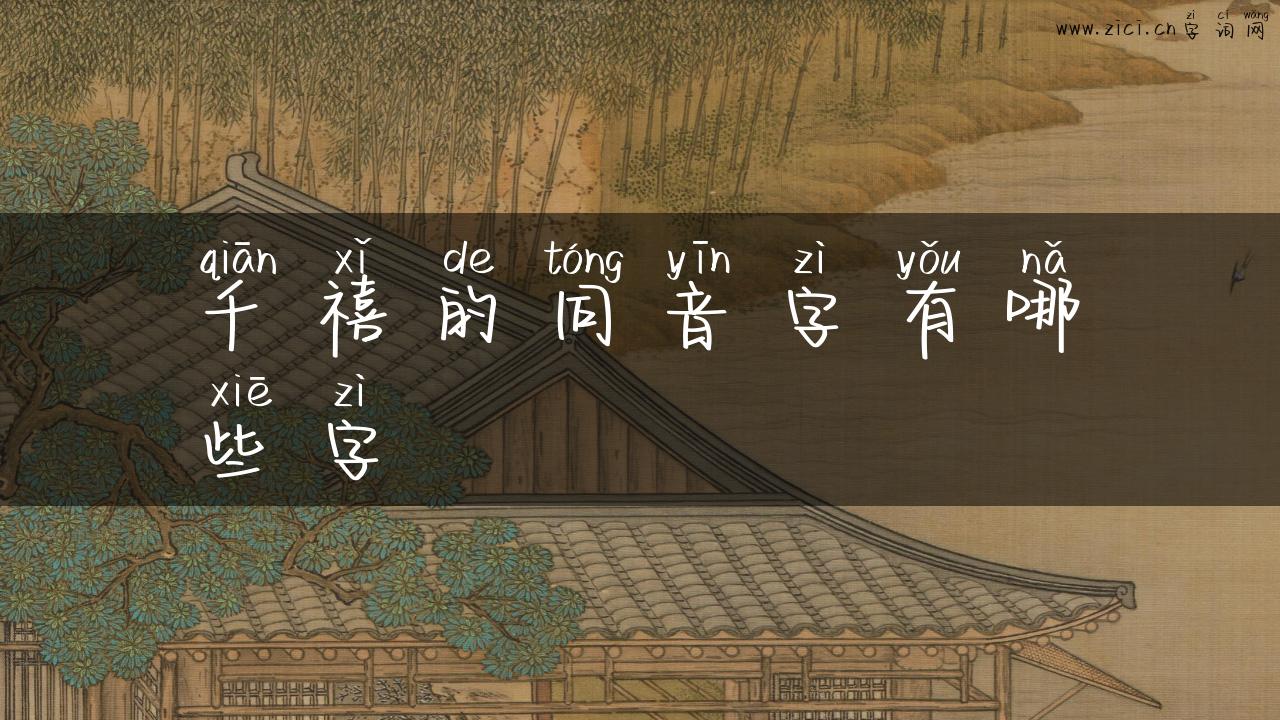 zì cí wǎng
www.zici.cn 字词网
qiān xǐ de tóng yīn zì yǒu nǎ
千禧的同音字有哪
xiē zì
些字